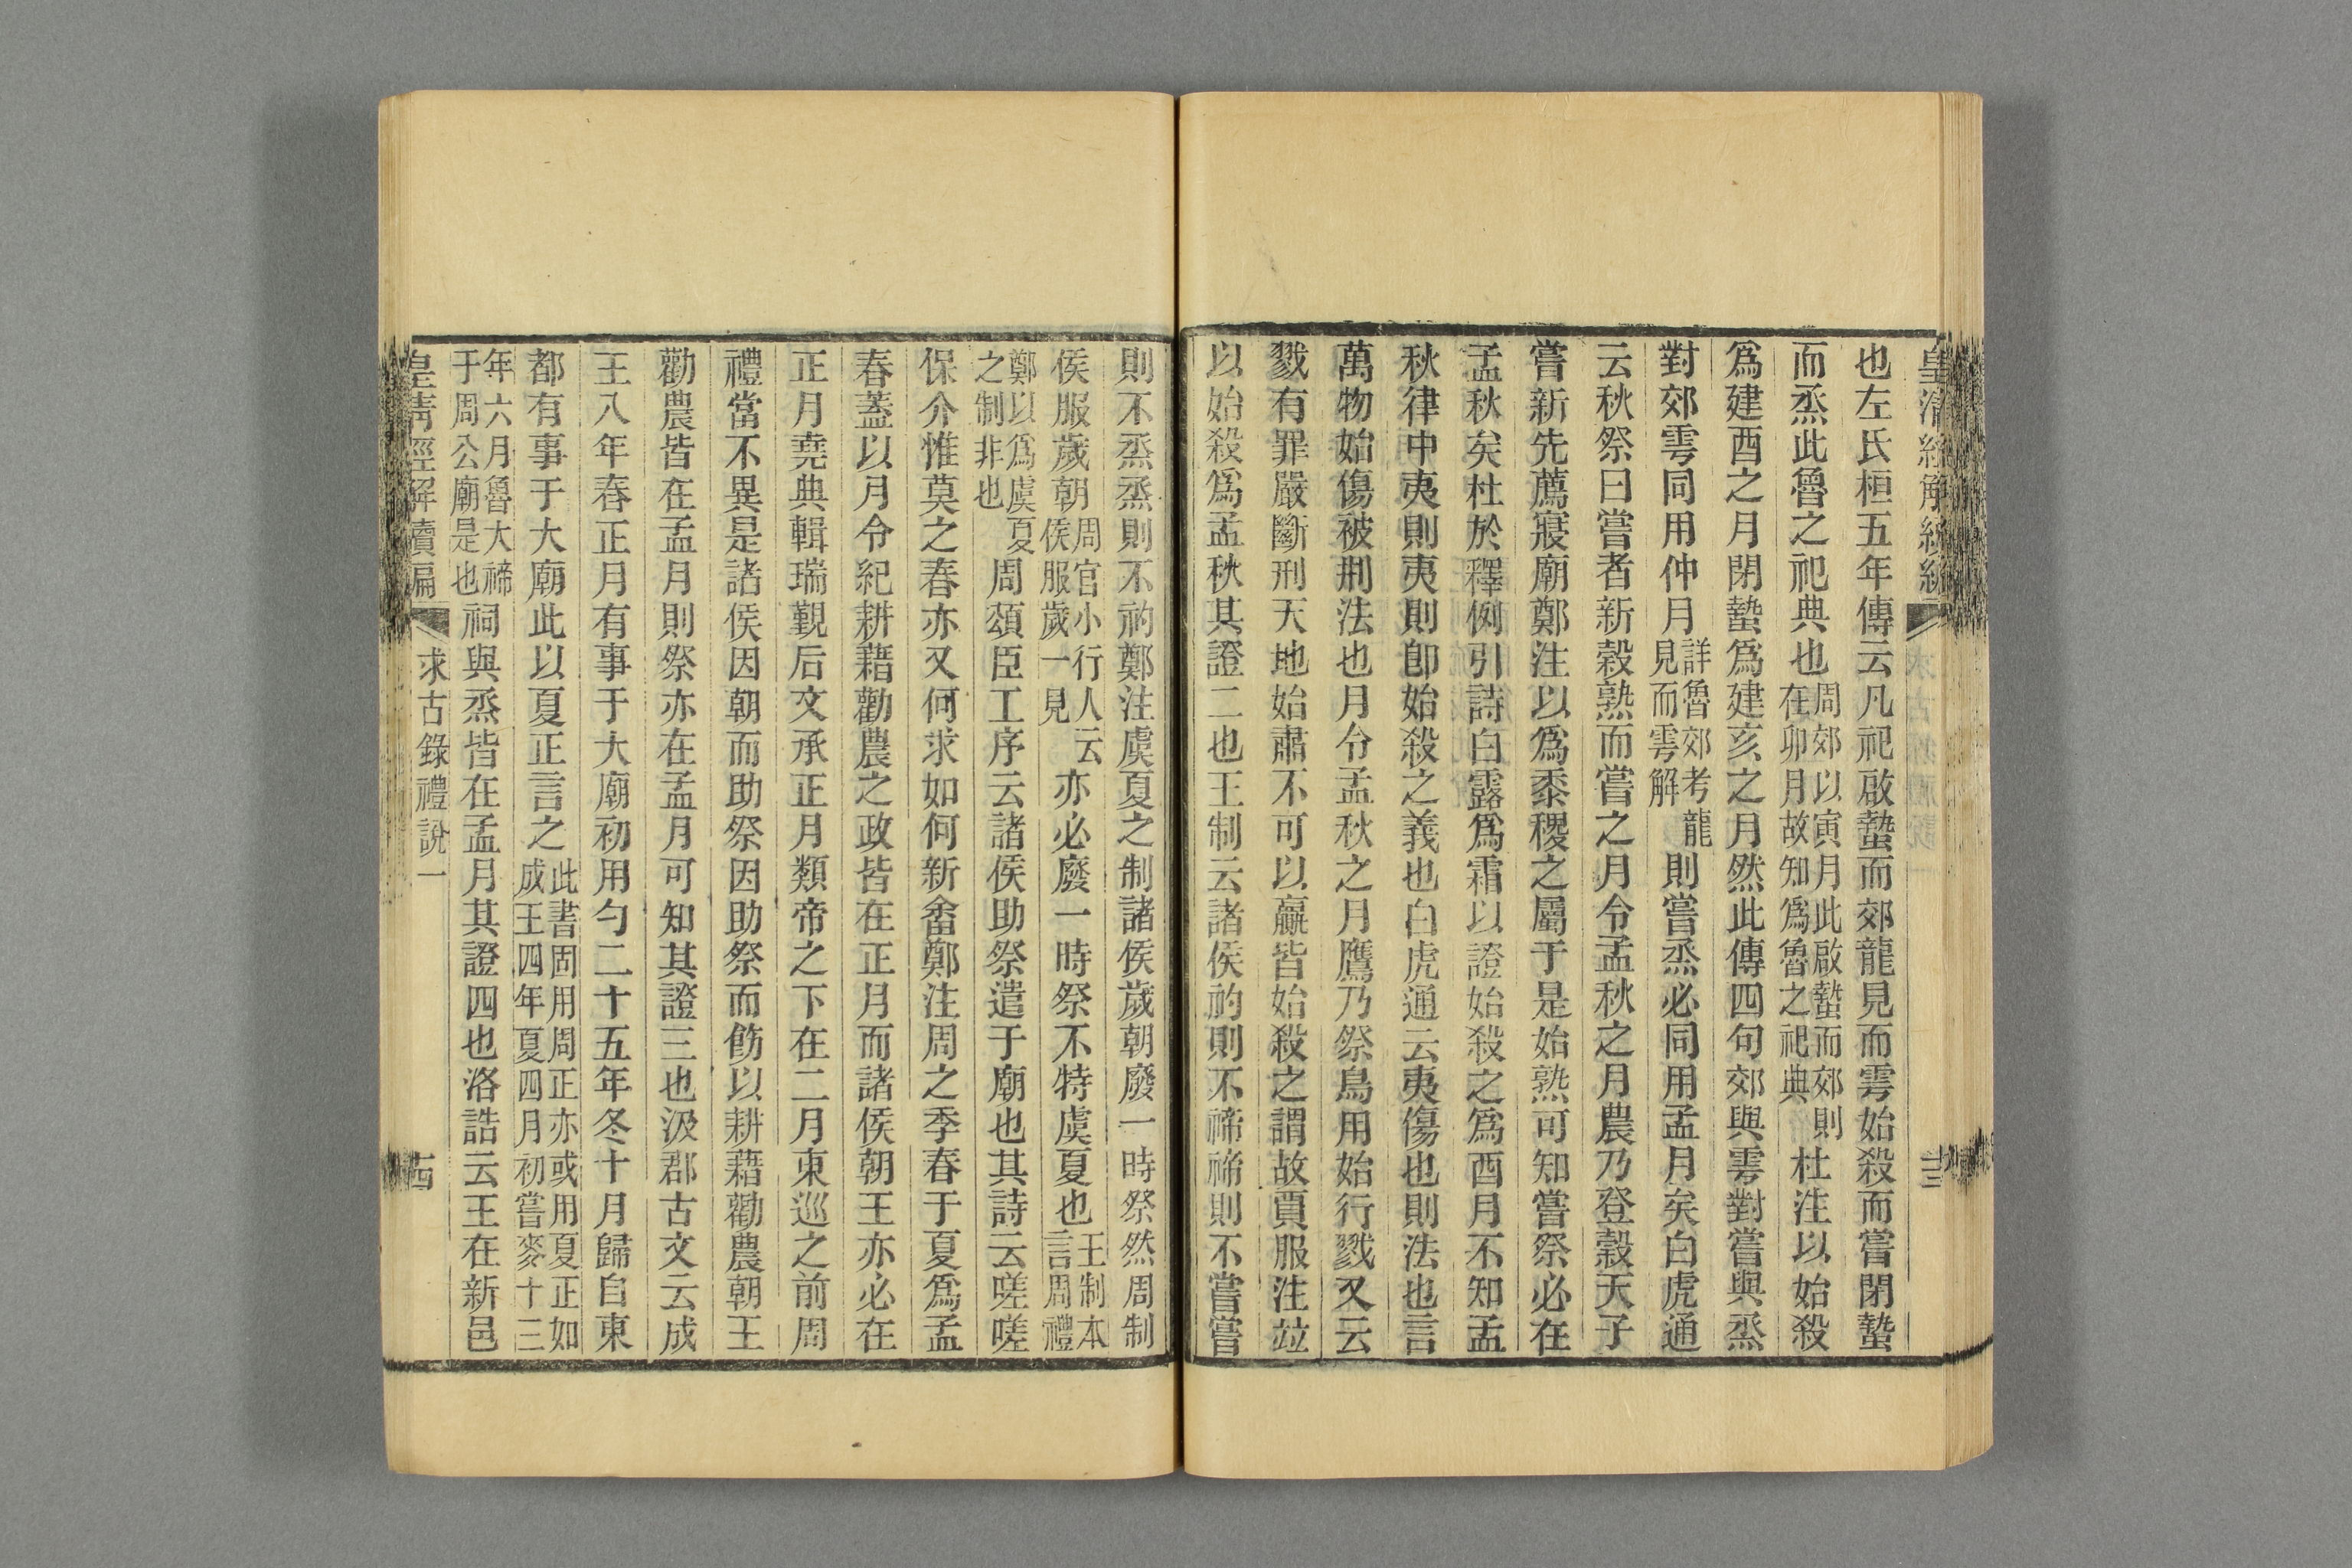 也左氏桓五年傳云凡祀啟蟄而郊龍見而雩始殺而嘗閉蟄
而烝此魯之祀典也周郊以寅月此啟蟄而郊則在卯月故知爲魯之祀典杜注以始殺
爲建酉之月閉蟄爲建亥之月然此傳四句郊與雩對嘗與烝
對郊雩同用仲月詳魯郊考龍見而雩解則嘗烝必同用孟月矣白虎通
云秋祭曰嘗者新穀熟而嘗之月令孟秋之月農乃登穀天子
嘗新先薦寢廟鄭注以爲黍稷之屬于是始熟可知嘗祭必在
孟秋矣杜於釋例引詩白露爲霜以證始殺之爲酉月不知孟
秋律中夷則夷則卽始殺之義也白虎通云夷傷也則法也言
萬物始傷被刑法也月令孟秋之月鷹乃祭鳥用始行戮又云
戮有罪嚴斷刑天地始肅不可以贏皆始殺之謂故賈服注竝
以始殺爲孟秋其證二也王制云諸侯礿則不禘禘則不嘗嘗
則不烝烝則不礿鄭注虞夏之制諸侯歲朝廢一時祭然周制
侯服歲朝周官小行人云侯服歲一見亦必廢一時祭不特虞夏也王制本言周禮
鄭以爲虞夏之制非也周頌臣工序云諸侯助祭遣于廟也其詩云嗟嗟
保介惟莫之春亦又何求如何新畬鄭注周之季春于夏爲孟
春蓋以月令紀耕藉勸農之政皆在正月而諸侯朝王亦必在
正月堯典輯瑞覲后文承正月類帝之下在二月東巡之前周
禮當不異是諸侯因朝而助祭因助祭而飭以耕藉勸農朝王
勸農皆在孟月則祭亦在孟月可知其證三也汲郡古文云成
王八年春正月有事于大廟初用勺二十五年冬十月歸自東
都有事于大廟此以夏正言之此書固用周正亦或用夏正如成王四年夏四月初嘗麥十三
年六月魯大禘于周公廟是也祠與烝皆在孟月其證四也洛誥云王在新邑
皇清經解續編
求古錄禮說一
十四